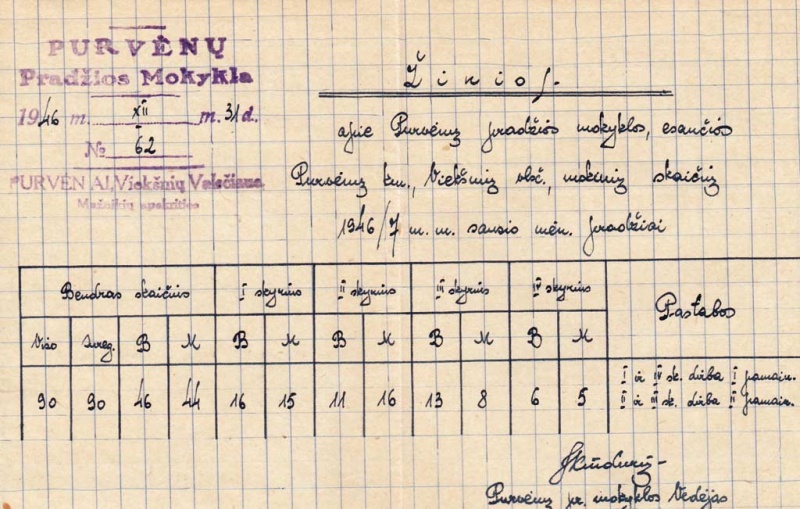 PURVĖNŲ
Pradžios Mokykla
1946 m. XII m. 31 d.
№ 62
PURVĖNAI, Viekšnių Valsčiaus
Mažeikių apskrities
Žinios.
apie Purvėnų pradžios mokyklos, esančios
Purvėnų km., Viekšnių vlsč., mokinių skaičių
1946/7 m. m. sausio mėn. pradžiai
Bendras skaičius I skyrius II skyrius III skyrius IV skyrius Pastabos
Viso Sureg. B M B M B M B M B M
90 90 46 44 16 15 11 16 13 8 6 5
I ir IV sk. dirba I pamain.
II ir III sk. dirba II pamain.
Purvėnų pr. mokyklos Vedėjas